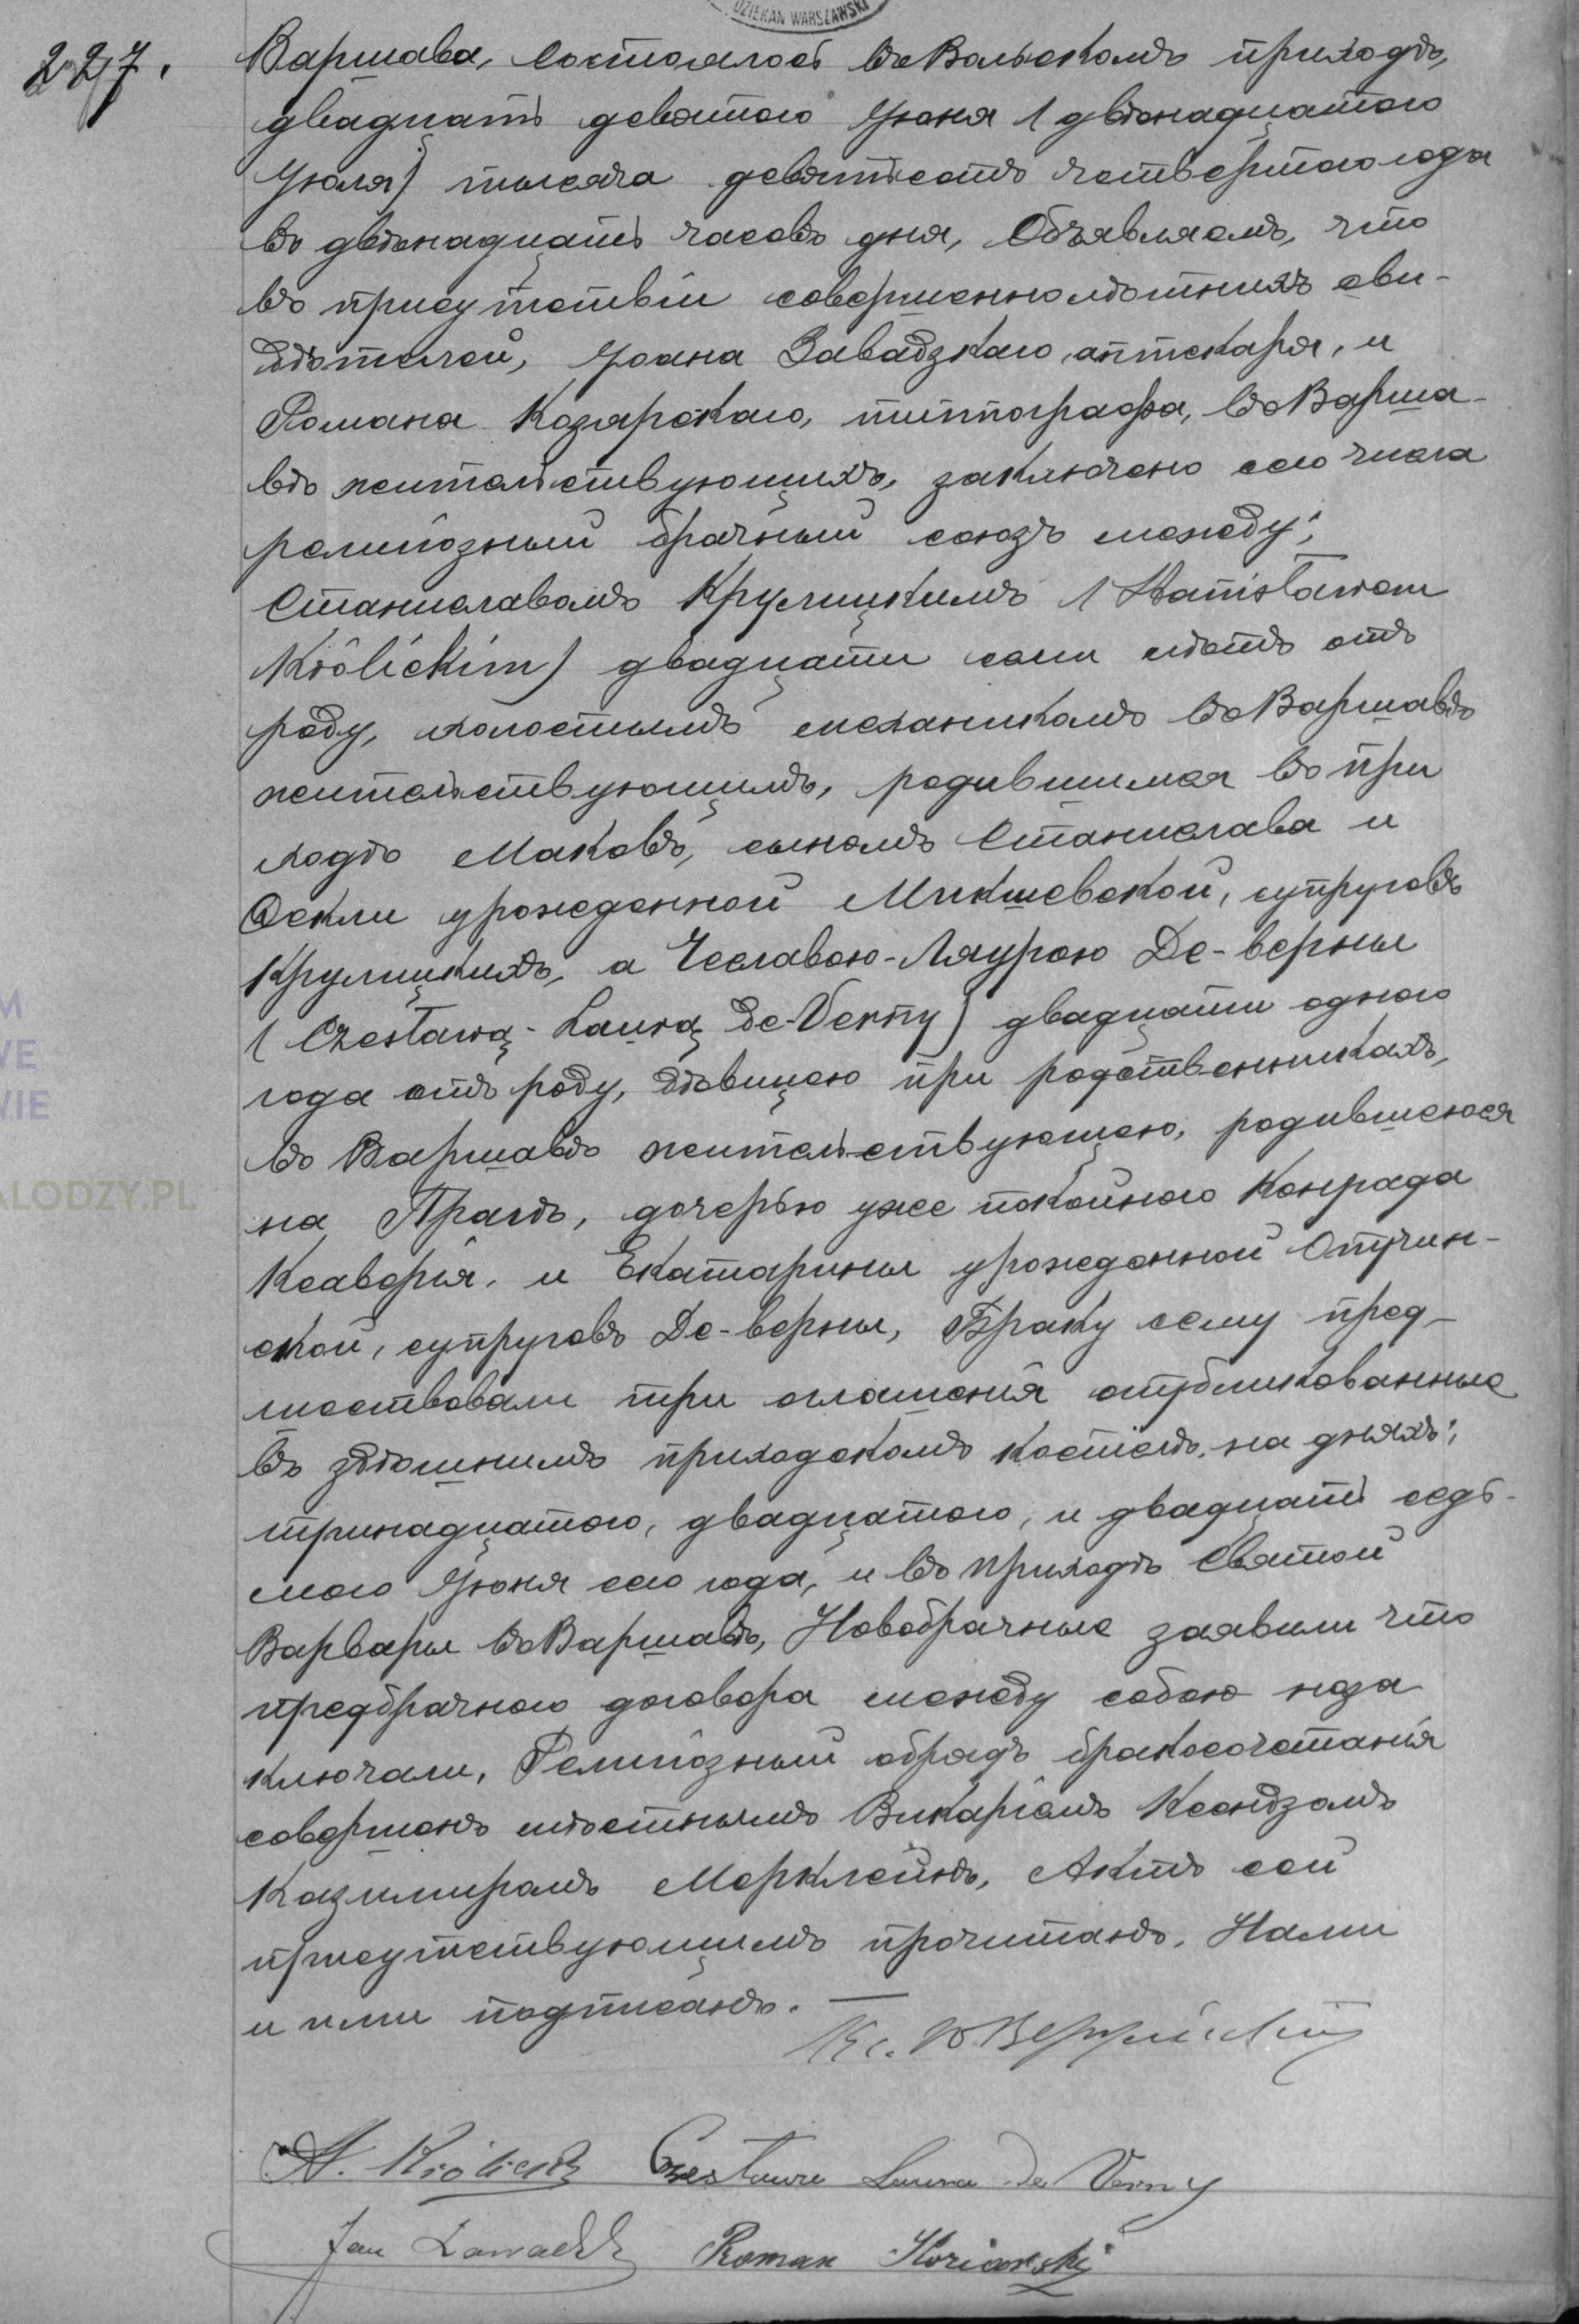 DZIEKAN WARSZAWSKI
227. Варшава, Состоялось въ Вольскомъ приходѣ,
двадцать девятого Іюня / двѣнадцатого
Іюля) тысяча девятьсотъ четвертого года
въ двѣнадцать часовъ дня, Объявляемъ, что
въ присутствіи совершеннолѣтнихъ сви-
дѣтелей, Іоана Завадзкаго, аптекаря, и
Романа Козярскаго, типографа, въ Варша-
вѣ жительствующихъ, заключено сего числа
религіозный брачный союзъ между:
Станиславомъ Крулицкимъ / Stanisławem
Królickim) двадцати семи лѣтъ отъ
роду, холостымъ механикомъ въ Варшавѣ
жительствующимъ, родившимся въ при
ходѣ Маковъ, сыномъ Станислава и
Ѳекли урожденной Микшевской, супруговъ
Крулицкихъ, а Чеславою-Ляурою Де-верны
( Czesławą-Laurą De-Verny) двадцати одного
года отъ роду, дѣвицею при родственникахъ,
въ Варшавѣ жительствующею, родившеюся
на Прагѣ, дочерью уже покойного Конрада
Ксаверія, и Екатарины урожденной Опучин-
ской, супруговъ Де-верны, Браку сему пред-
шествовали три оглашенія опубликованные
въ здѣшнимъ приходскомъ костелѣ, на дняхъ:
тринадцатого, двадцатого, и двадцать седь-
мого Іюня сего года, и въ приходѣ Святой
Варвары въ Варшавѣ, Новобрачные заявили что
предбрачного договора между собою неза
ключали, Религіозный обрядъ бракосочетанія
совершенъ мѣстнымъ Викаріемъ Ксендзомъ
Казимиромъ Мерклейнъ, Актъ сей
присутствующимъ прочитанъ, Нами
и ими подписанъ. —
Кс.
St. Królicki Czesława Laura de Verny
Jan Zawadzki Roman Koziarski
M
WE
WIE
ALODZY.PL